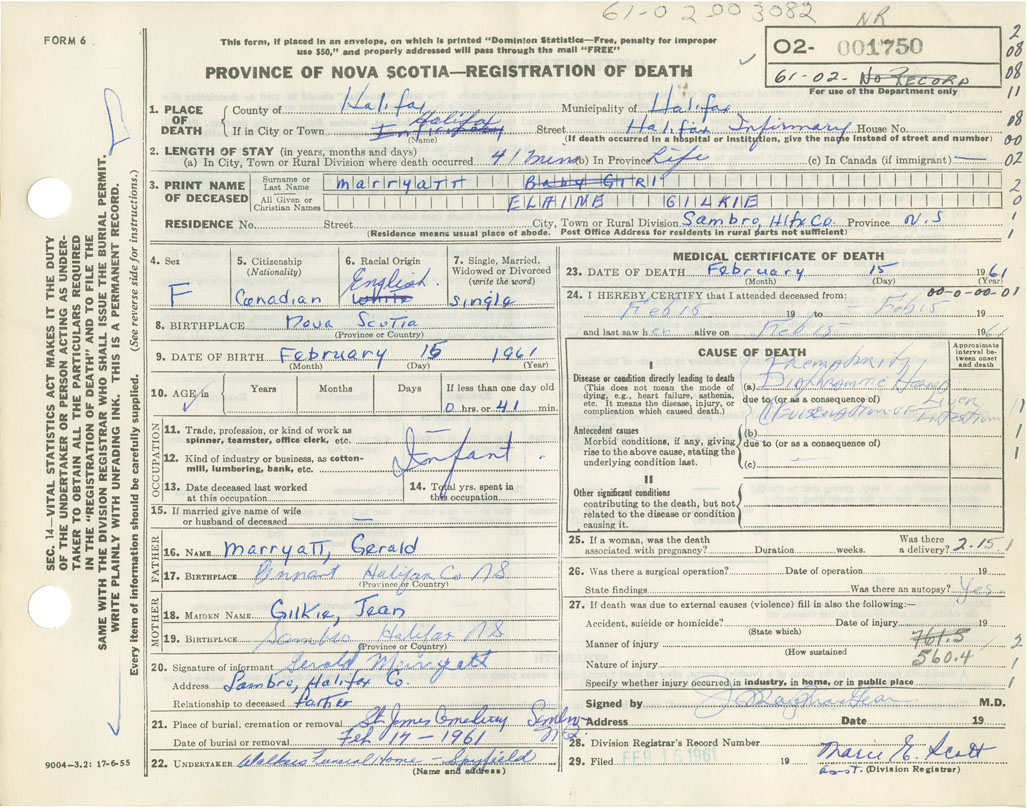 61-02 003082
NR
FORM 6
This form, if placed in an envelope, on which is printed "Dominion Statistics—Free, penalty for improper
use $50," and properly addressed will pass through the mail "FREE"
02- 001750
61-02- No Record
For use of the Department only
PROVINCE OF NOVA SCOTIA—REGISTRATION OF DEATH
SEC. 14—VITAL STATISTICS ACT MAKES IT THE DUTY
OF THE UNDERTAKER OR PERSON ACTING AS UNDER-
TAKER TO OBTAIN ALL THE PARTICULARS REQUIRED
IN THE "REGISTRATION OF DEATH" AND TO FILE THE
SAME WITH THE DIVISION REGISTRAR WHO SHALL ISSUE THE BURIAL PERMIT.
WRITE PLAINLY WITH UNFADING INK. THIS IS A PERMANENT RECORD.
Every item of information should be carefully supplied. (See reverse side for instructions.)
1. PLACE OF DEATH
County of Halifax Municipality of Halifax
If in City or Town Halifax Street Halifax Infirmary House No.
(Name) (If death occurred in a hospital or institution, give the name instead of street and number)
2. LENGTH OF STAY (in years, months and days)
(a) In City, Town or Rural Division where death occurred 41 mins (b) In Province Life (c) In Canada (if immigrant) —
3. PRINT NAME OF DECEASED
Surname or Last Name Marryatt Baby Girl
All Given or Christian Names ELAINE GILKIE
RESIDENCE No. Street City, Town or Rural Division Sambro, Hlfx Co. Province N.S
(Residence means usual place of abode. Post Office Address for residents in rural parts not sufficient)
4. Sex F
5. Citizenship (Nationality) Canadian
6. Racial Origin English White
7. Single, Married, Widowed or Divorced (write the word) single
8. BIRTHPLACE Nova Scotia
(Province or Country)
9. DATE OF BIRTH February 15 1961
(Month) (Day) (Year)
10. AGE in Years Months Days If less than one day old
0 hrs. or 41 min.
OCCUPATION
11. Trade, profession, or kind of work as
spinner, teamster, office clerk, etc. —
12. Kind of industry or business, as cotton-
mill, lumbering, bank, etc. Infant.
13. Date deceased last worked at this occupation
14. Total yrs. spent in this occupation
15. If married give name of wife
or husband of deceased —
FATHER
16. NAME Marryatt, Gerald
17. BIRTHPLACE Pennant Halifax Co NS
(Province or Country)
MOTHER
18. MAIDEN NAME Gilkie, Jean
19. BIRTHPLACE Sambro Halifax NS
(Province or Country)
20. Signature of informant Gerald Marryatt
Address Sambro, Halifax Co.
Relationship to deceased father
21. Place of burial, cremation or removal St James Cemetery Sambro N.S.
Date of burial or removal Feb 17 - 1961
22. UNDERTAKER Walkers Funeral Home - Spryfield
(Name and address)
9004—3.2: 17-6-55
MEDICAL CERTIFICATE OF DEATH
23. DATE OF DEATH February 15 1961
(Month) (Day) (Year)
00-0-00-01
24. I HEREBY CERTIFY that I attended deceased from:
Feb 15 19 to Feb 15 19
and last saw her alive on Feb 15 1961
CAUSE OF DEATH
Approximate interval between onset and death
I
Disease or condition directly leading to death
(This does not mean the mode of
dying, e.g., heart failure, asthenia,
etc. It means the disease, injury, or
complication which caused death.)
(a) Prematurity
due to (or as a consequence of)
Liver
Antecedent causes
Morbid conditions, if any, giving
rise to the above cause, stating the
underlying condition last.
(b)
due to (or as a consequence of)
(c) —
II
Other significant conditions
contributing to the death, but not
related to the disease or condition
causing it.
25. If a woman, was the death
associated with pregnancy? Duration weeks. Was there a delivery? 2.15
26. Was there a surgical operation? Date of operation 19
State findings Was there an autopsy? Yes
27. If death was due to external causes (violence) fill in also the following:—
Accident, suicide or homicide? Date of injury 19
(State which)
Manner of injury 761.5
(How sustained)
560.4
Nature of injury
Specify whether injury occurred in industry, in home, or in public place
Signed by M.D.
Address Date 19
28. Division Registrar's Record Number
29. Filed FEB 16 1961 19 Marie E. Scott
Asst. (Division Registrar)
2
08
08
11
08
00
02
2
0
1
1
1
1
1
2
1
1